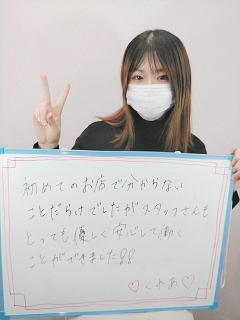 初めてのお店で分からない
ことだらけでしたがスタッフさんも
とっても優しく安心して働く
ことができました!!
♡くれあ♡